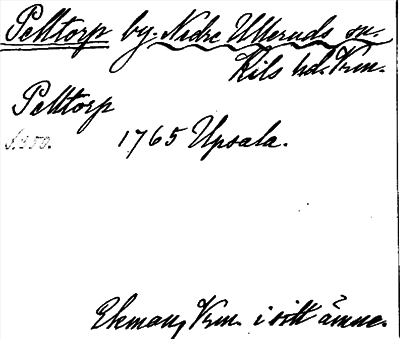 Pelltorp by. Nedre Ulleruds sn.
Kils hd. Vrm.
Pelltorp
1765 Upsala.
Ekman, Vrm. i sitt ämne.